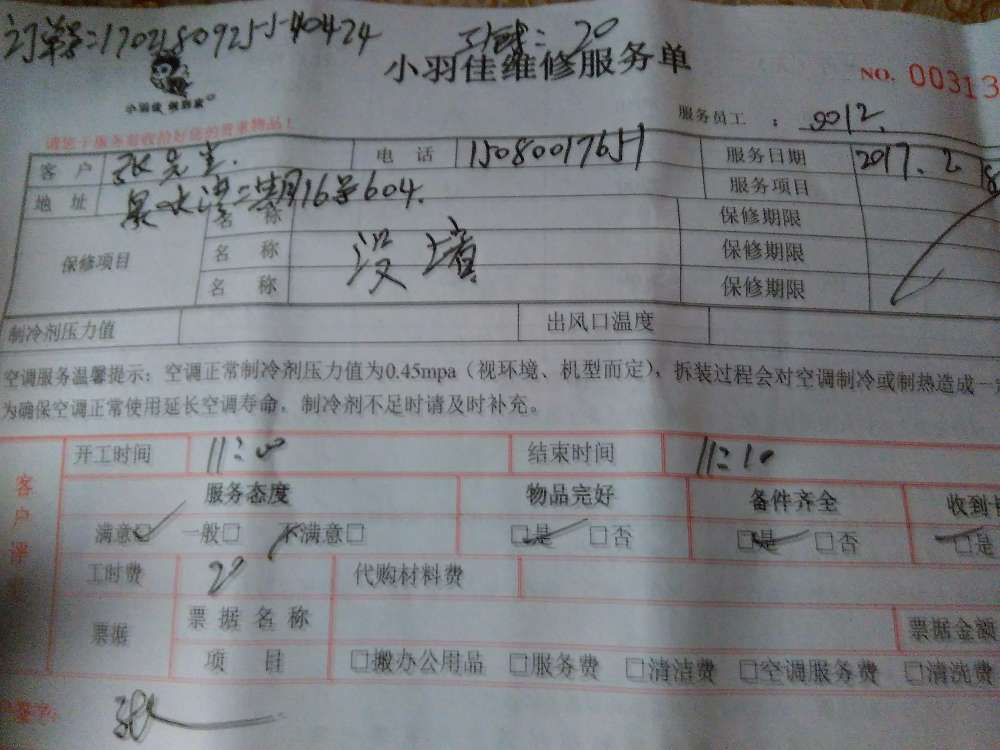 订单号:170218092551-40424 工时: 20
小羽佳维修服务单
NO. 00313
小羽佳 做到家
服务员工 : 0012.
客户 张先生. 电话 15080017651 服务日期 2017.2.18
地址 泉水湾二期16号604. 服务项目
保修项目 名称 没堵 保修期限
名称 保修期限
名称 保修期限
制冷剂压力值 出风口温度
空调服务温馨提示:空调正常制冷剂压力值为0.45mpa(视环境、机型而定),拆装过程会对空调制冷或制热造成一
为确保空调正常使用延长空调寿命,制冷剂不足时请及时补充。
客户评 开工时间 11:00 结束时间 11:10
服务态度 物品完好 备件齐全 收到
满意□ 一般□ 不满意□ □是 □否 □是 □否 □是
工时费 20 代购材料费
票据 票据名称 票据金额
项目 □搬办公用品 □服务费 □清洁费 □空调服务费 □清洗费
签字: 张